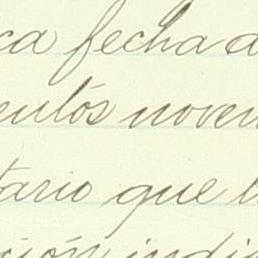 ca fecha d
entós novem
tario que l
ción indi